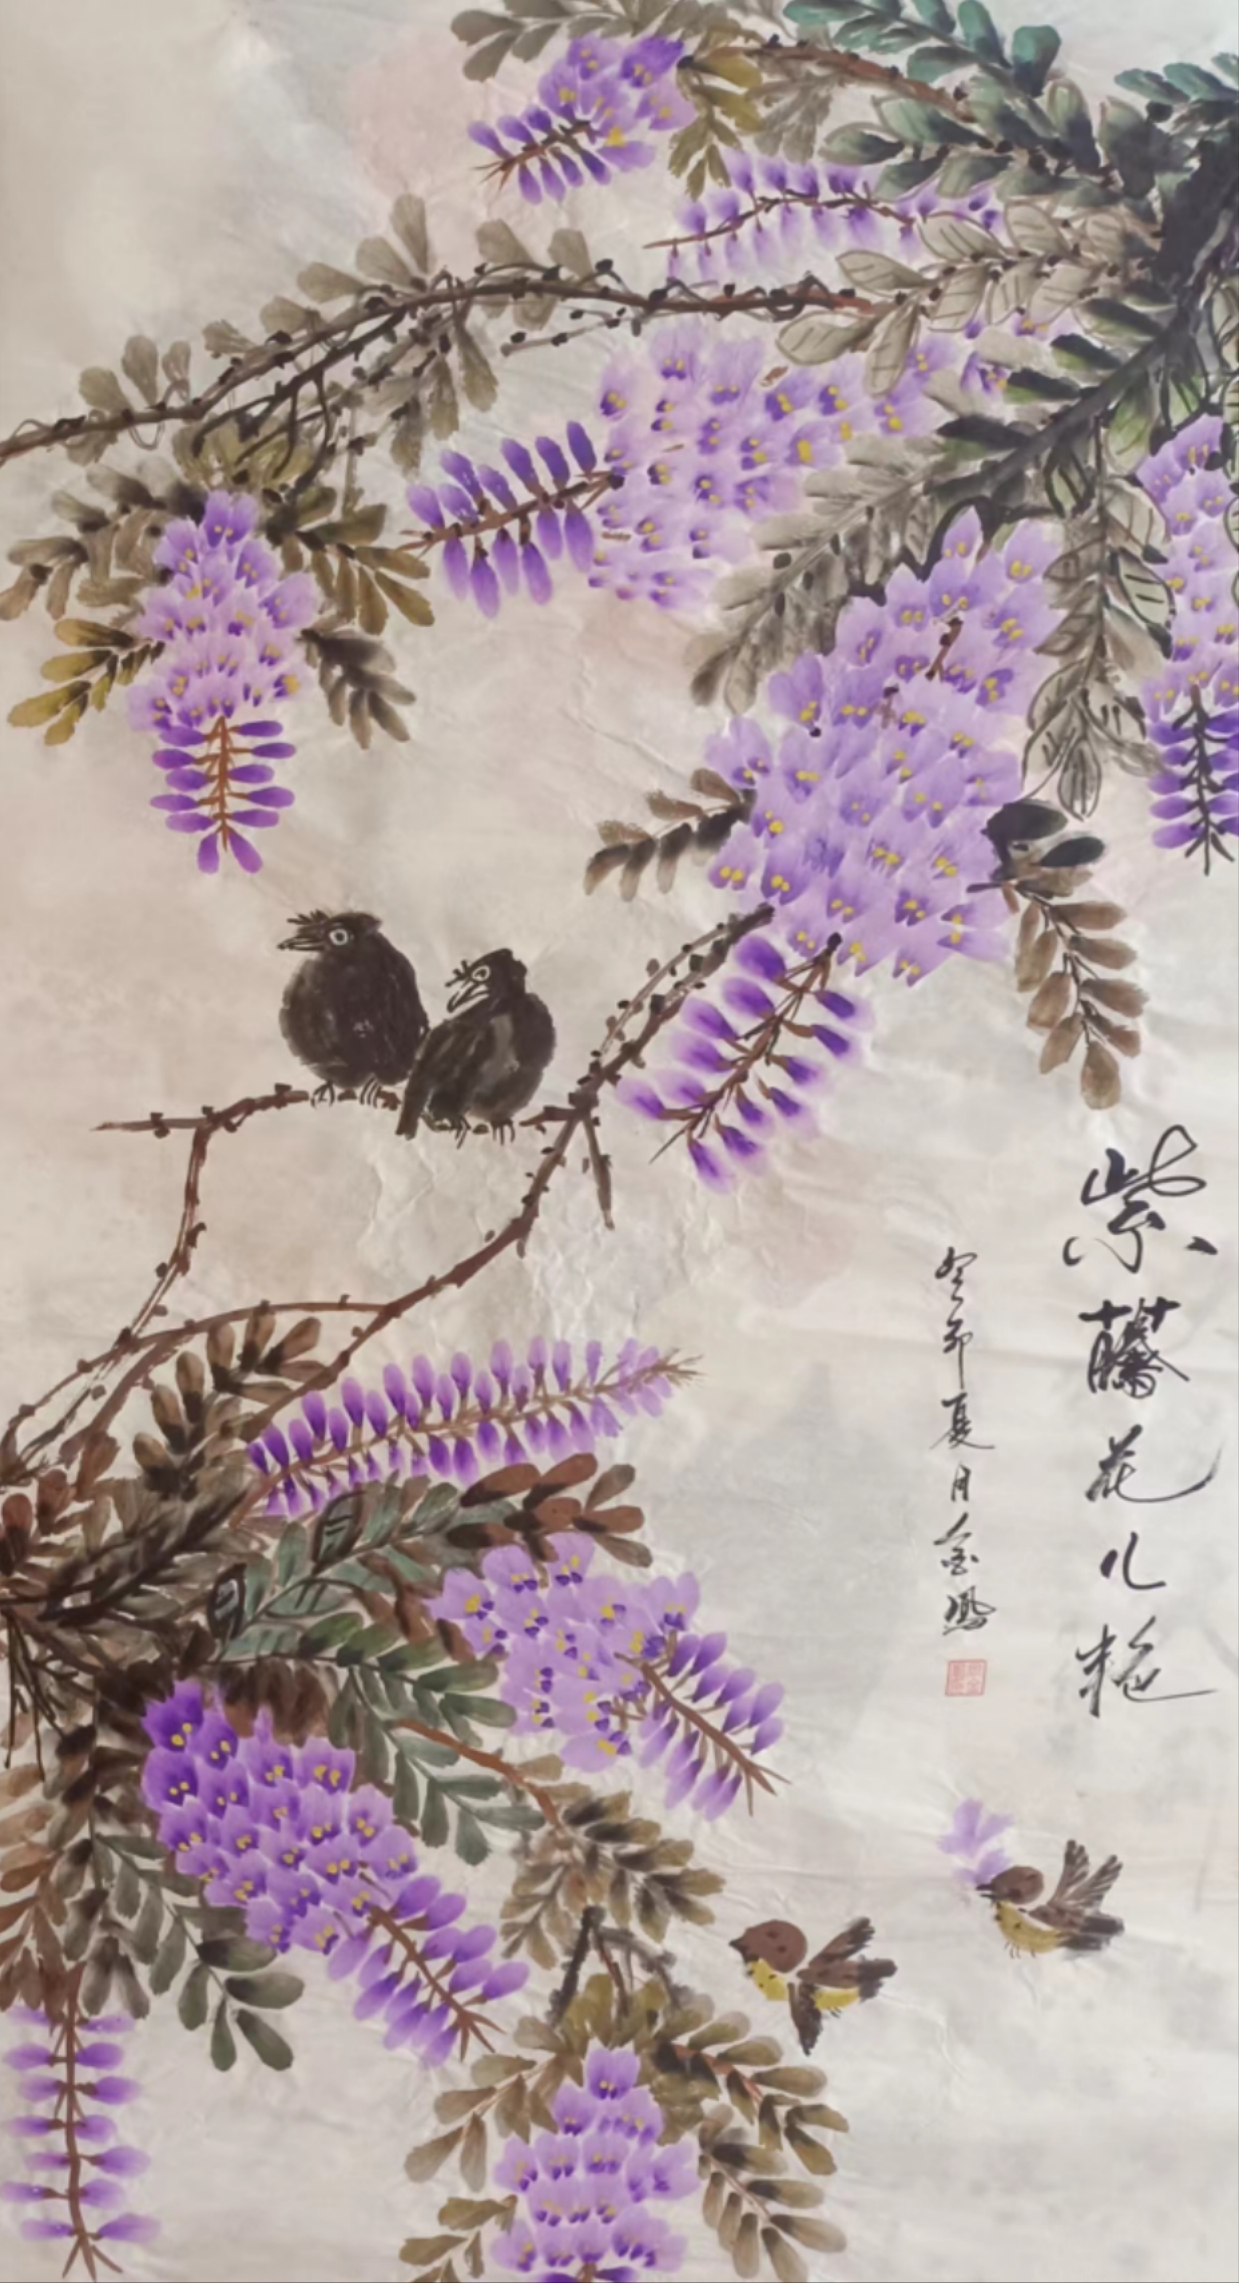 紫藤花儿艳
癸卯夏月金凤